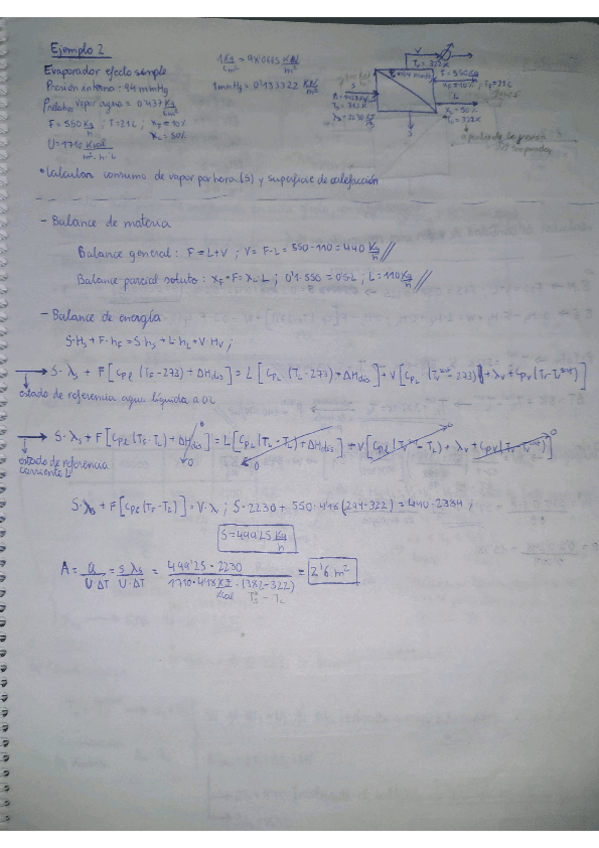 Ejemplo 2
Evaporador efecto simple
Presión interna = 94 mmHg
vapor agua = 0'437 Kg/cm²
F = 550 Kg/h ; T = 21 C ; x_F = 10%
x_L = 50%
U = 1710 Kcal/m²·h·C
1 Kg/cm² = 98'0665 KN/m²
1 mmHg = 0'133322 KN/m²
• Calcular consumo de vapor por hora (S) y superficie de calefacción
- Balance de materia
Balance general : F = L + V ; V = F - L = 550 - 110 = 440 Kg/h //
Balance parcial soluto : x_F · F = x_L · L ; 0'1 · 550 = 0'5 L ; L = 110 Kg/h //
- Balance de energía
S·H_S + F·h_F = S·h_S + L·h_L + V·H_V ;
→ S·λ_S + F[C_pf (T_F - 273) + ΔH_dis] = L[C_pL (T_L - 273) + ΔH_dis] + V[C_pL (T - 273) + λ_V + C_pV (T - T)]
estado de referencia agua líquida a 0C
→ S·λ_S + F[C_pf (T_F - T_L) + ΔH_dis] = L[C_pL (T_L - T_L) + ΔH_dis] + V[C_pL (T - T_L) + λ_V + C_pV (T - T)]
0 0 0 0
estado de referencia
corriente L
S·λ_S + F[C_pf (T_F - T_L)] = V·λ ; S·2230 + 550·4'18 (294 - 322) = 440·2384 ;
S = 499'25 Kg/h
A = Q/U·ΔT = S·λ_S/U·ΔT = 499'25 · 2230 / 1710 · 4'18 KJ/Kcal · (382 - 322) = 2'6 m²
T_S - T_L